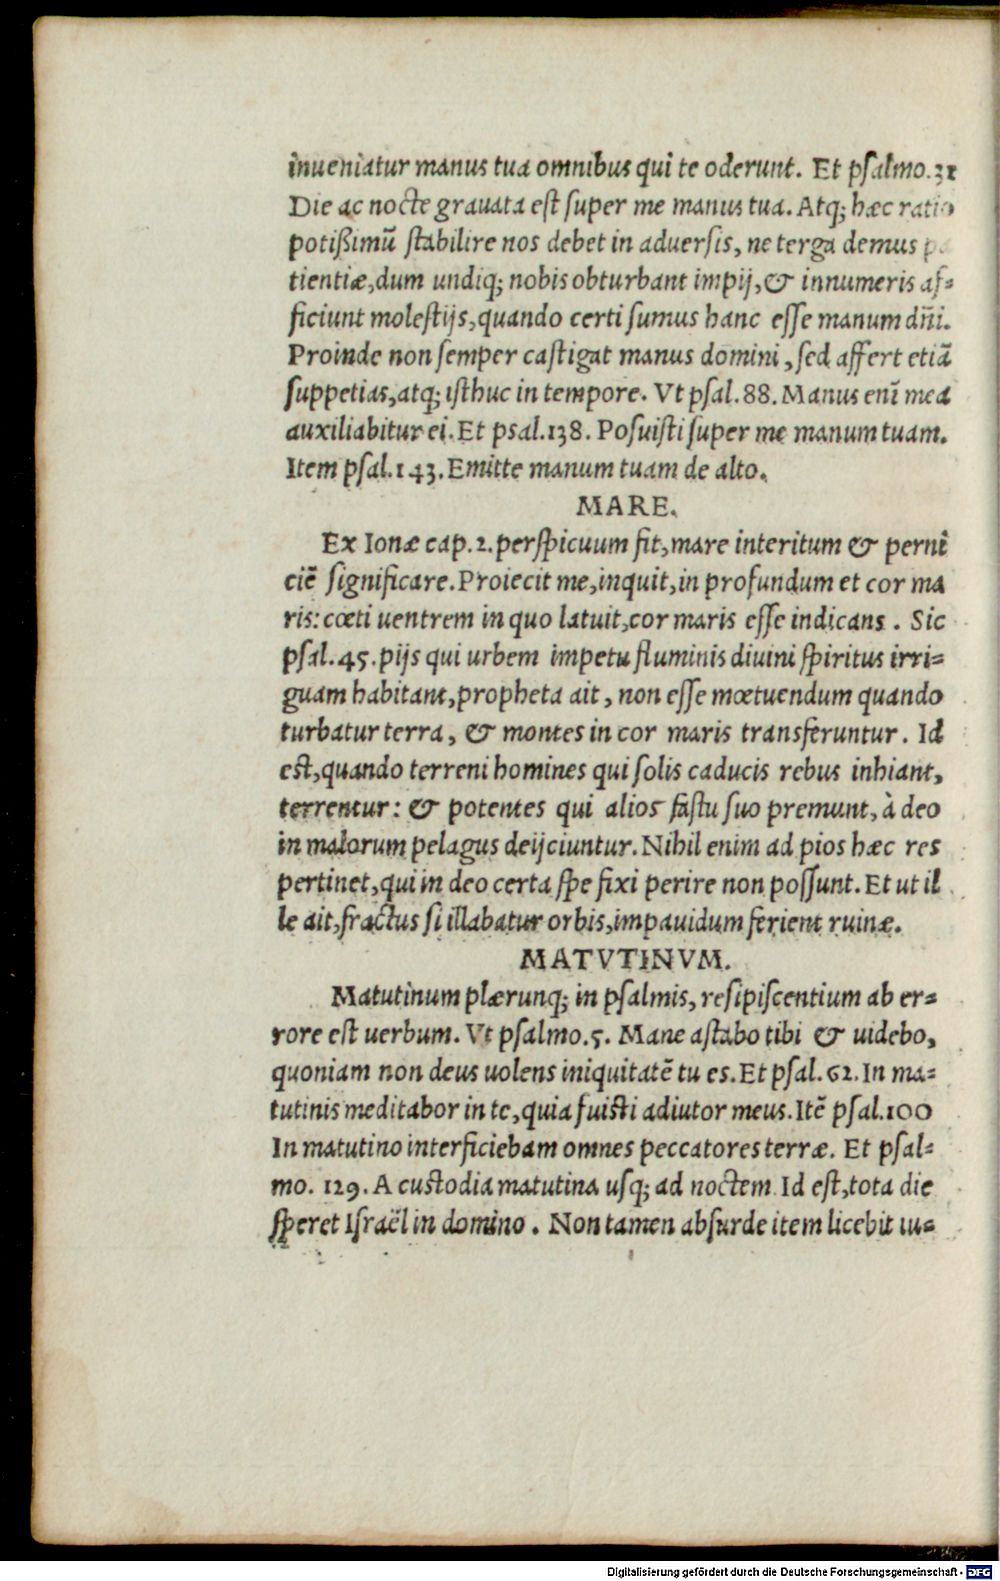 inueniatur manus tua omnibus qui te oderunt. Et psalmo.31
Die ac nocte grauata est super me manus tua. Atq; hæc ratio
potißimū stabilire nos debet in aduersis, ne terga demus pa
tientiæ, dum undiq; nobis obturbant impij, & innumeris af-
ficiunt molestijs, quando certi sumus hanc esse manum dñi.
Proinde non semper castigat manus domini, sed affert etiā
suppetias, atq; isthuc in tempore. Vt psal. 88. Manus enī mea
auxiliabitur ei. Et psal.138. Posuisti super me manum tuam.
Item psal.143. Emitte manum tuam de alto.
MARE.
Ex Ionæ cap.2. perspicuum fit, mare interitum & perni
ciē significare. Proiecit me, inquit, in profundum et cor ma
ris: cœti uentrem in quo latuit, cor maris esse indicans. Sic
psal.45. pijs qui urbem impetu fluminis diuini spiritus irri-
guam habitant, propheta ait, non esse mœtuendum quando
turbatur terra, & montes in cor maris transferuntur. Id
est, quando terreni homines qui solis caducis rebus inhiant,
terrentur: & potentes qui alios fastu suo premunt, à deo
in malorum pelagus deijciuntur. Nihil enim ad pios hæc res
pertinet, qui in deo certa spe fixi perire non possunt. Et ut il
le ait, fractus si illabatur orbis, impauidum ferient ruinæ.
MATVTINVM.
Matutinum plærunq; in psalmis, resipiscentium ab er-
rore est uerbum. Vt psalmo.5. Mane astabo tibi & uidebo,
quoniam non deus uolens iniquitatē tu es. Et psal.62. In ma-
tutinis meditabor in te, quia fuisti adiutor meus. Itē psal.100
In matutino interficiebam omnes peccatores terræ. Et psal-
mo. 129. A custodia matutina usq; ad noctem Id est, tota die
speret Israël in domino. Non tamen absurde item licebit iu-
Digitalisierung gefördert durch die Deutsche Forschungsgemeinschaft - DFG